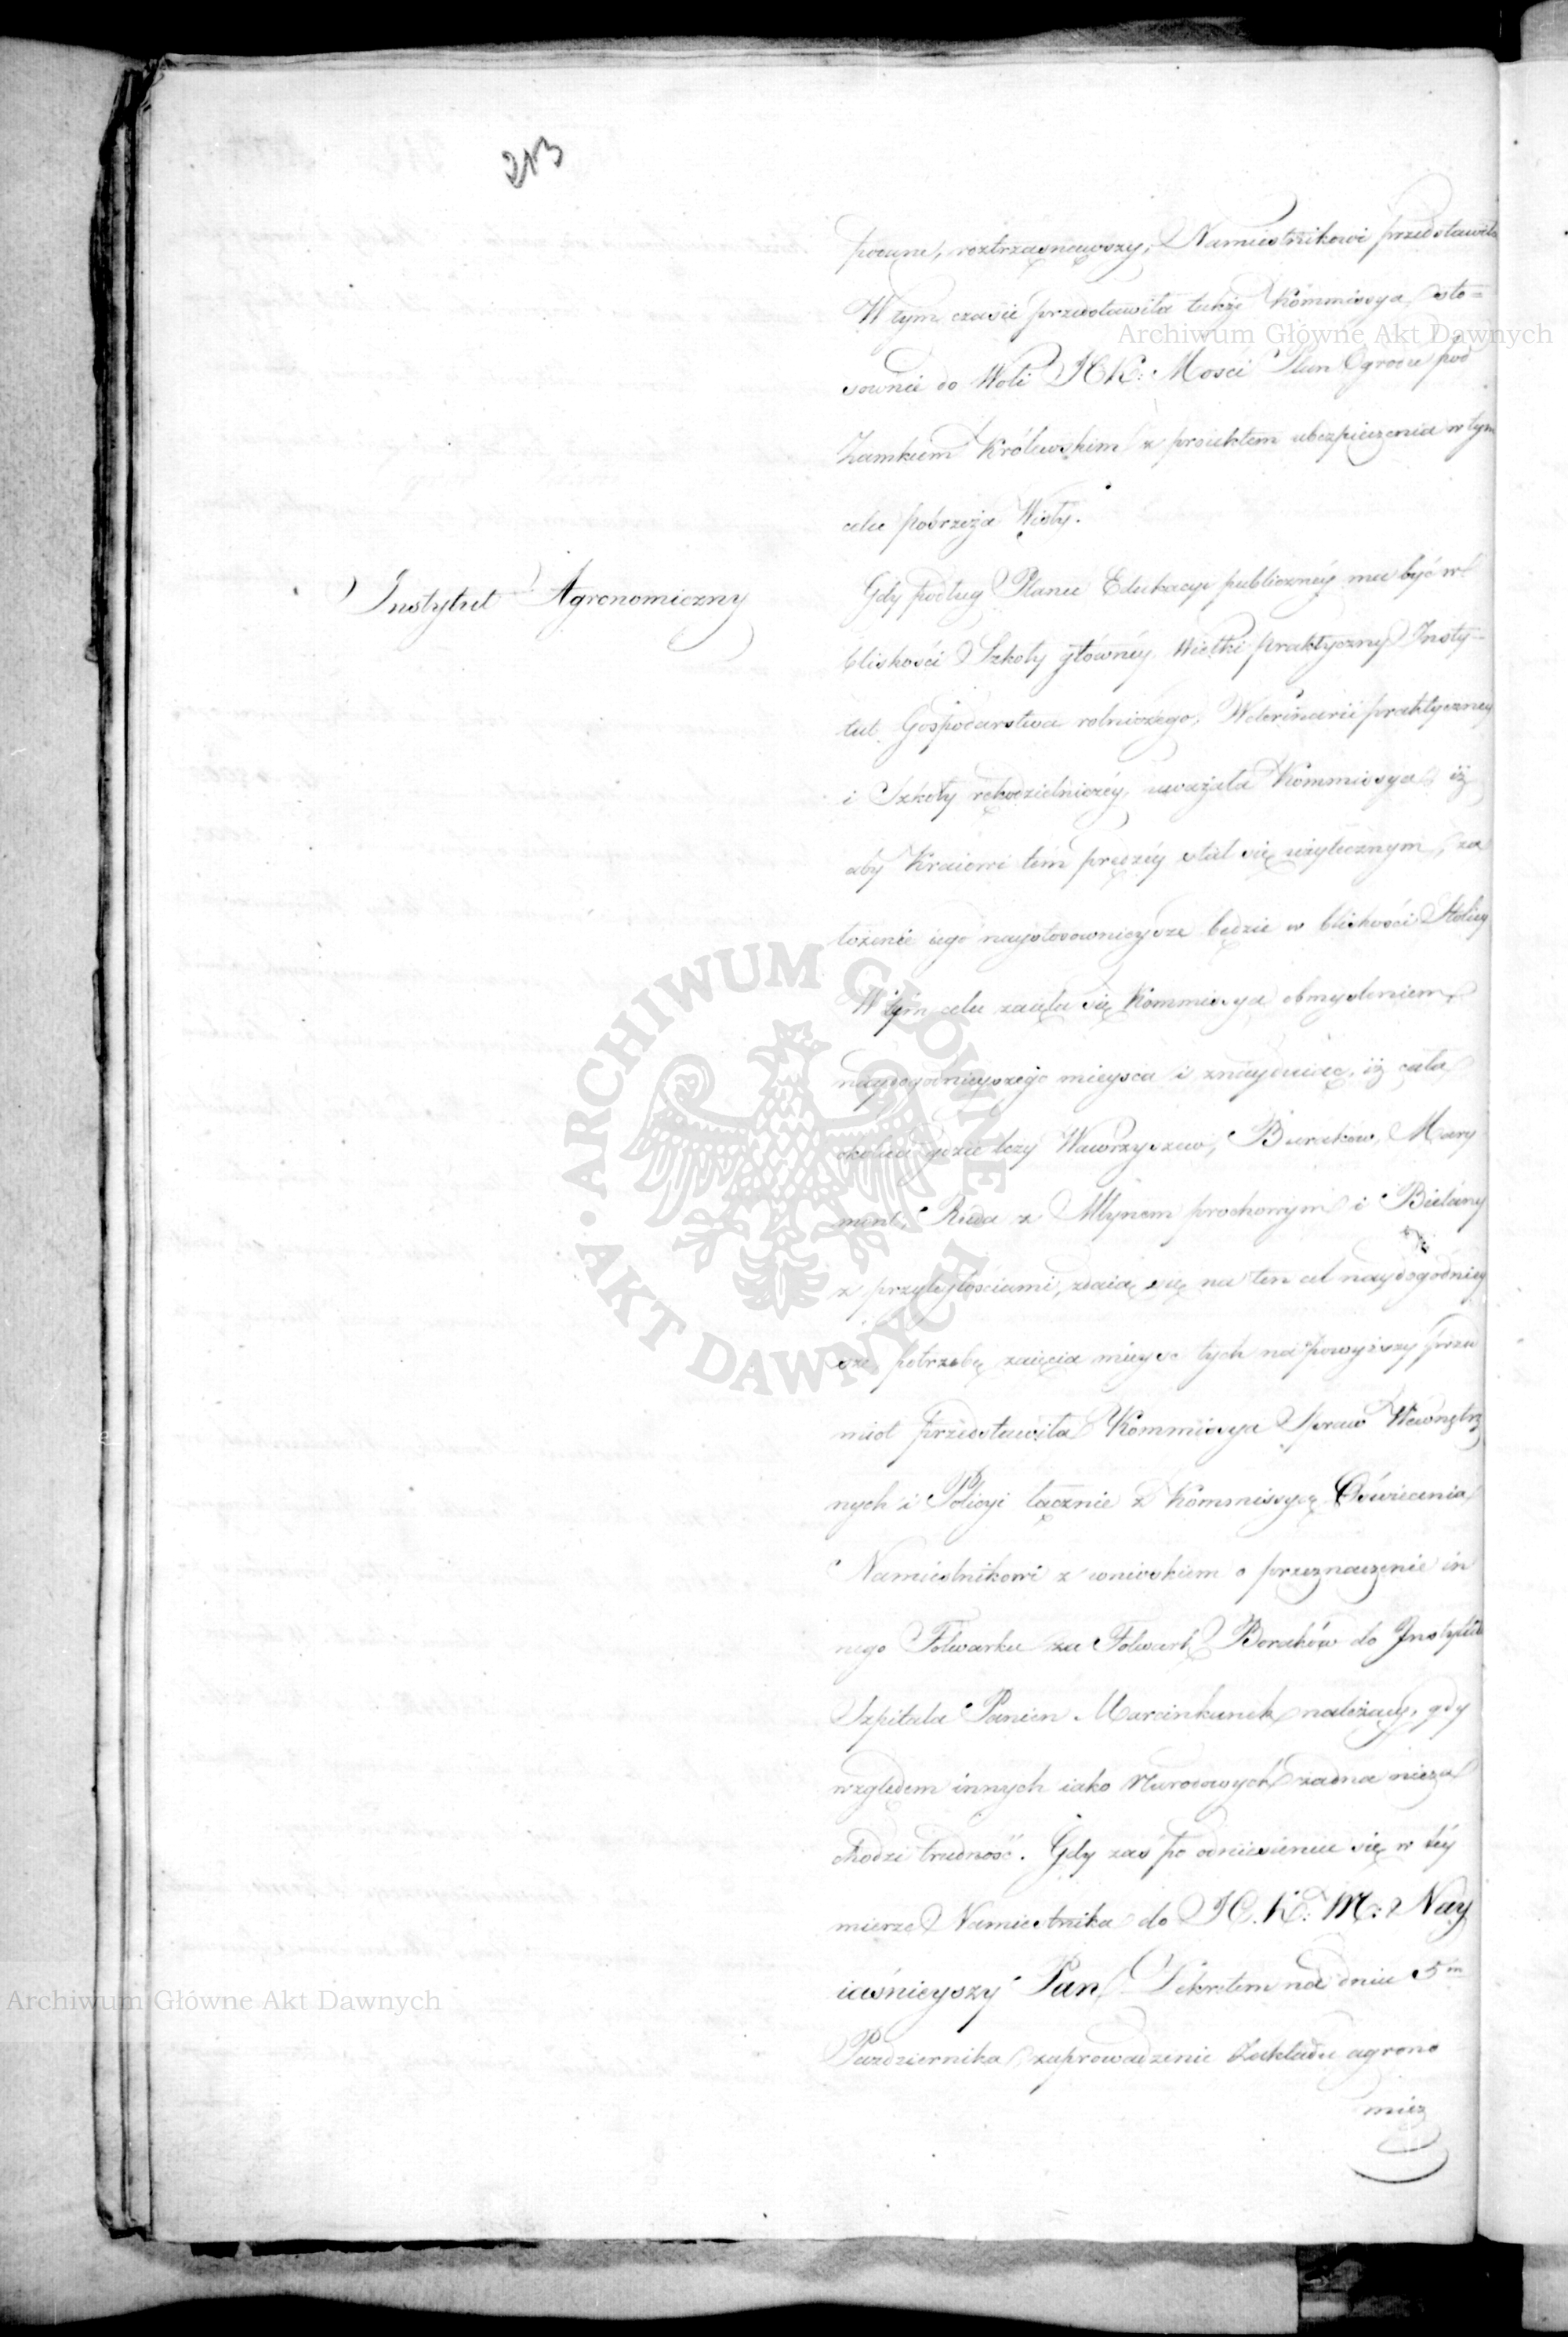 213
podane, roztrząsnąwszy, Namiestnikowi przedstawiła
W tym czasie przedstawiła także Kommissya sto=
sownie do Woli J. K: Mości Plan Ogrodu pod
Zamkiem Królewskim z proiektem ubezpieczenia w tym
celu pobrzeża Wisły.
Instytut Agronomiczny
Gdy podług Planu Edukacyi publiczney ma być w
bliskości Szkoły główney Wielki praktyczny Insty=
tut Gospodarstwa rolniczego, Weterinarii praktyczney
i Szkoły rękodzielniczéy, uważała Kommissya iż
aby Kraiowi tém prędzéy stał się użytecznym, za
łożenie iego naystosownieysze będzie w bliskości Stolicy
W tym celu zaięła się Kommissya obmyśleniem
naydogodnieyszego mieysca i znayduiąc, iż cała
okolica gdzie leży Wawrzyszew, Buraków, Mary
mont, Ruda z Młynem prochowym i Bielany
z przyległościami, zdaią się na ten cel naydogodniey
sze, potrzebę zaięcia mieysc tych na powyższy przed
miot przedstawiła Kommissya Spraw Wewnętrz
nych i Policyi łącznie z Kommissyą Oświecenia
Namiestnikowi z wnioskiem o przeznaczenie in
nego Folwarku za Folwark Boraków do Instytutu
Szpitala Panien Marcinkanek należący, gdy
względem innych iako Narodowych żadna nieza
chodzi trudność. Gdy zaś po odniesieniu się w téy
mierze Namiestnika do J. K: M: Nay
iaśnieyszy Pan Dekretem na dniu 5m
Pazdziernika zaprowadzenie Zakładu agrono
micz
Archiwum Główne Akt Dawnych
Archiwum Główne Akt Dawnych
ARCHIWUM GŁÓWNE AKT DAWNYCH